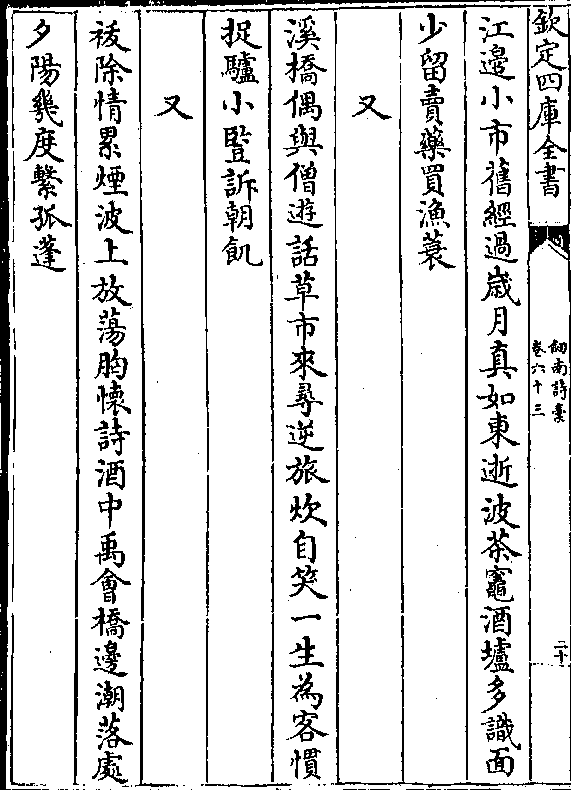 欽定四庫全書
劒南詩槀
卷六十三
二十
江邊小市舊經過歲月真如東逝波茶竈酒壚多識面
少留賣藥買漁蓑
又
溪橋偶與僧遊話草市來尋逆旅炊自笑一生為客慣
捉驢小豎訴朝飢
又
袚除情累煙波上放蕩胸懷詩酒中禹會橋邊潮落處
夕陽幾度繫孤蓬